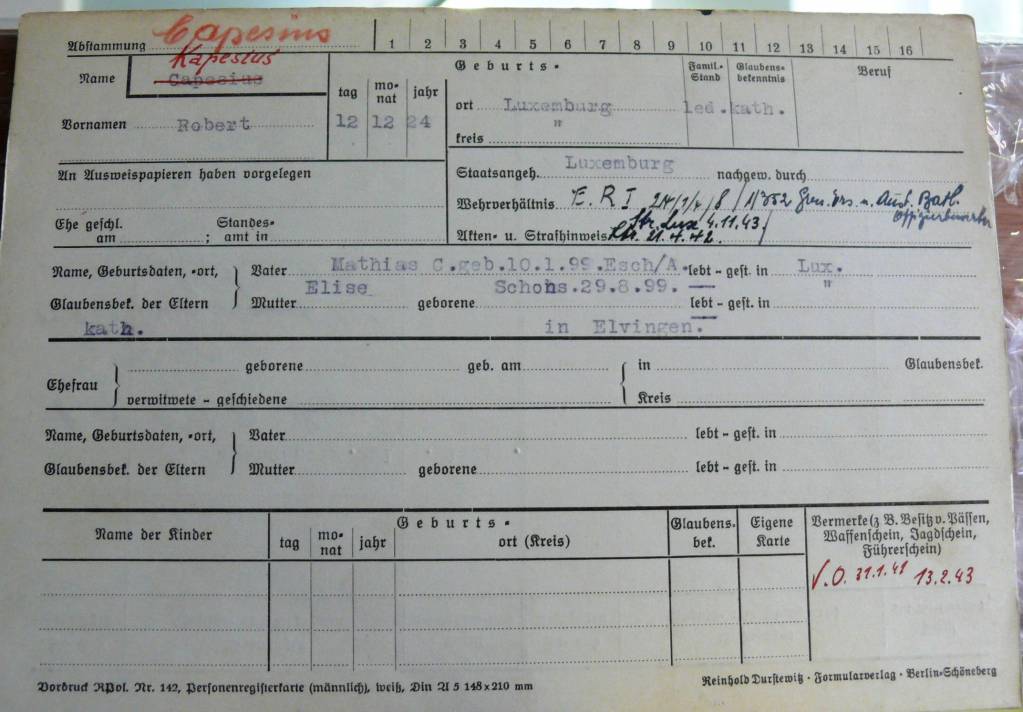 Abstammung Capesius 1 2 3 4 5 6 7 8 9 10 11 12 13 14 15 16
Kapesius
Name Capesius
Vornamen Robert
tag monat jahr
12 12 24
Geburts-
ort Luxemburg
kreis "
Famil.-Stand
led.
Glaubensbekenntnis
kath.
Beruf
An Ausweispapieren haben vorgelegen
Ehe geschl. Standes-
am ; amt in
Staatsangeh. Luxemburg nachgew. durch
Wehrverhältnis E. R I
Akten- u. Strafhinweis 4.11.43.
21.4.42.
Name, Geburtsdaten, -ort, Vater Mathias C.geb.10.1.99.Esch/A. lebt - gest. in Lux.
Glaubensbek. der Eltern Mutter Elise geborene Schohs.29.8.99. lebt - gest. in "
kath. in Elvingen.
Ehefrau geborene geb. am in Glaubensbek.
verwitwete - geschiedene Kreis
Name, Geburtsdaten, -ort, Vater lebt - gest. in
Glaubensbek. der Eltern Mutter geborene lebt - gest. in
Name der Kinder
Geburts-
tag monat jahr ort (Kreis)
Glaubens-
bek.
Eigene
Karte
Vermerke (z. B. Besitz v. Pässen,
Waffenschein, Jagdschein,
Führerschein)
V.O. 31.1.41 13.2.43
Vordruck RPol. Nr. 142, Personenregisterkarte (männlich), weiß, Din A 5 148x210 mm
Reinhold Durstewitz · Formularverlag · Berlin-Schöneberg